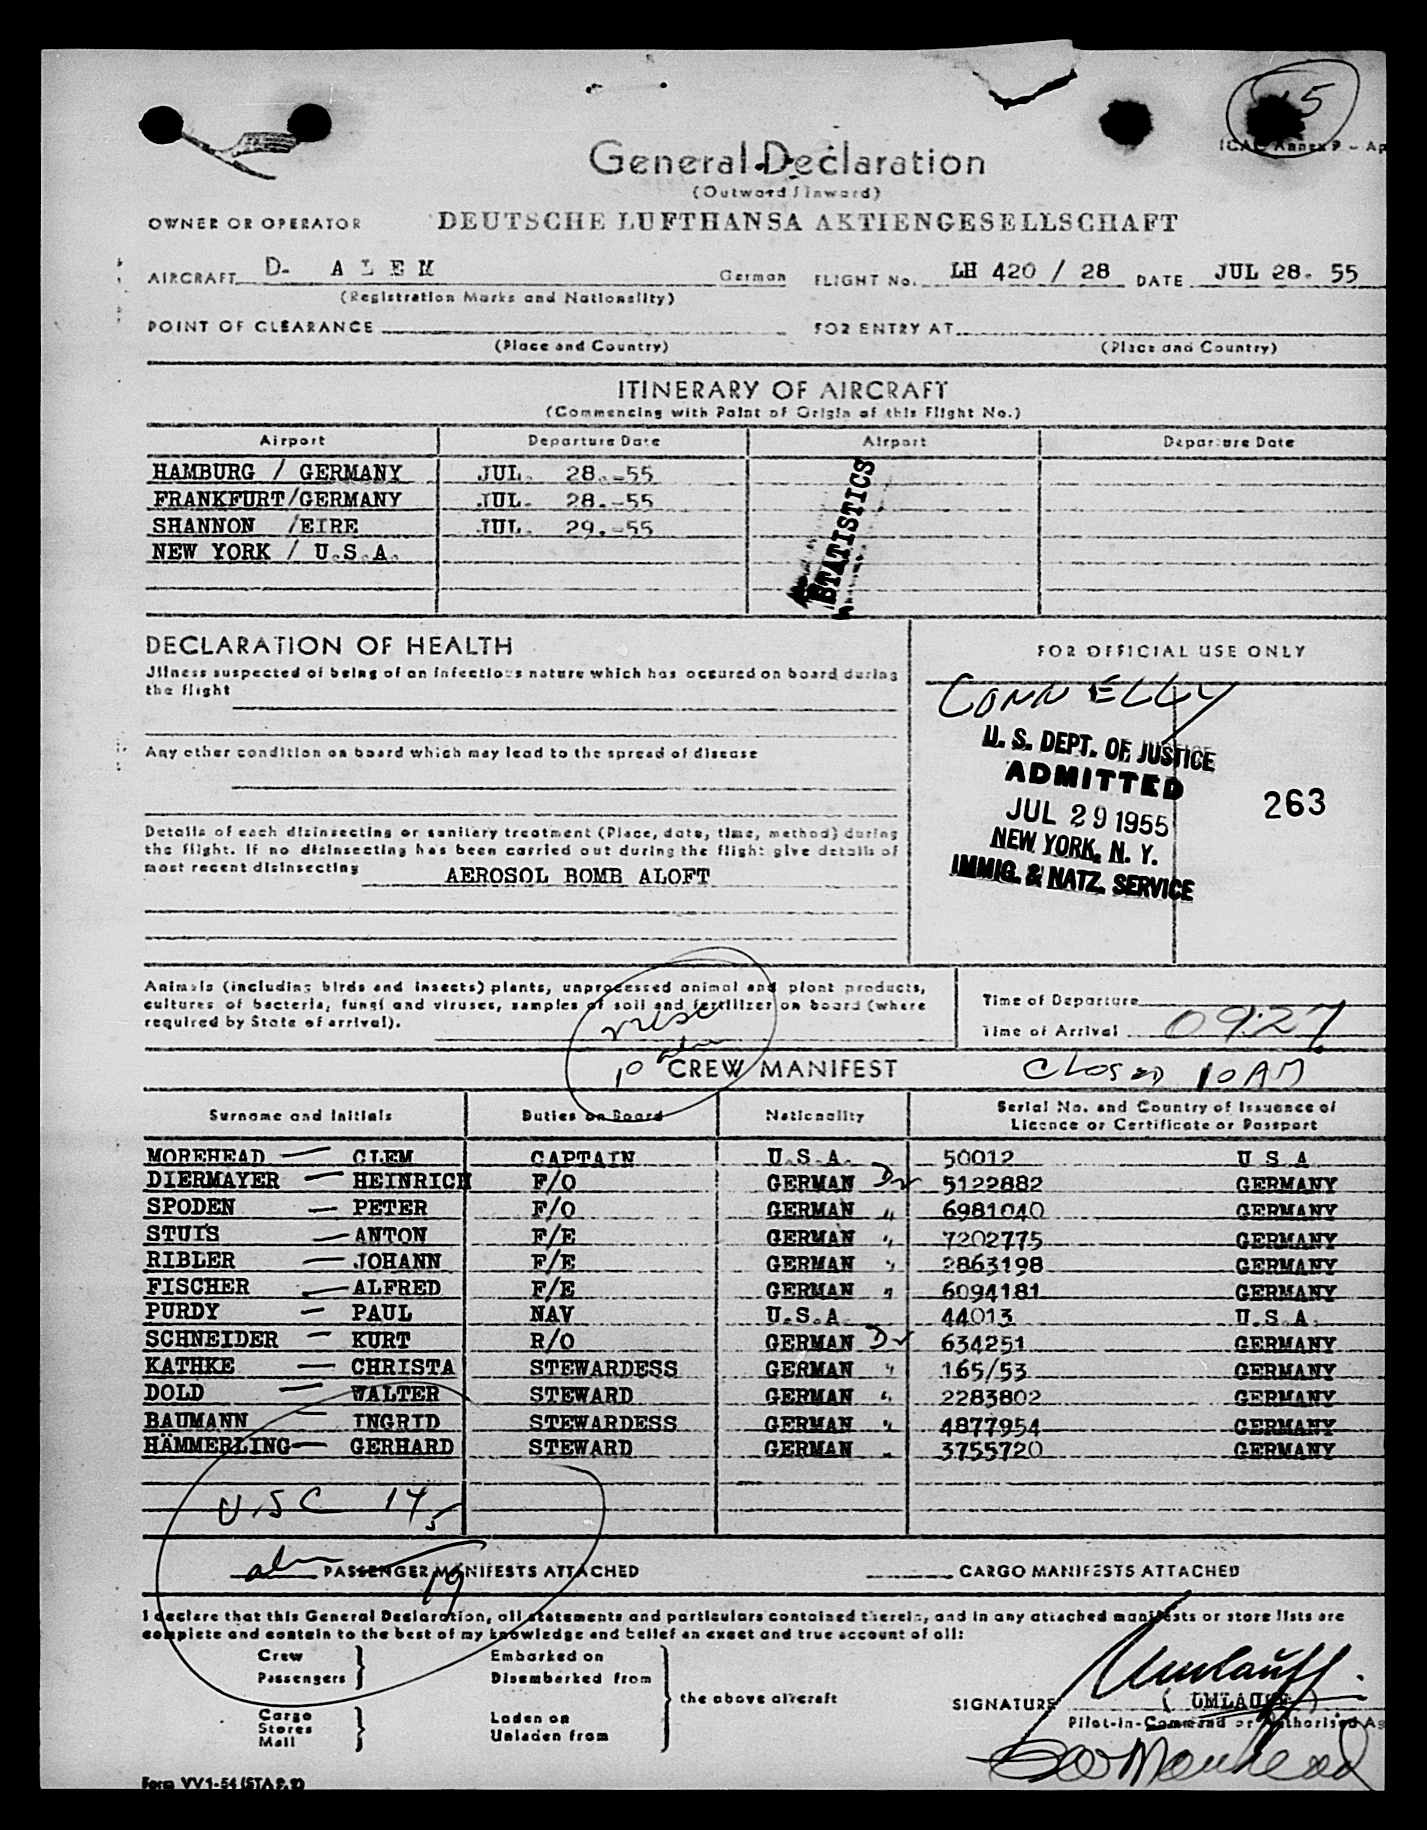 15
ICAO Annex 9 - Ap
General Declaration
(Outward / Inward)
OWNER OR OPERATOR DEUTSCHE LUFTHANSA AKTIENGESELLSCHAFT
AIRCRAFT D- A L E M German FLIGHT No. LH 420 / 28 DATE JUL 28. 55
(Registration Marks and Nationality)
POINT OF CLEARANCE FOR ENTRY AT
(Place and Country) (Place and Country)
ITINERARY OF AIRCRAFT
(Commencing with Point of Origin of this Flight No.)
Airport Departure Date Airport Departure Date
HAMBURG / GERMANY JUL. 28.-55
FRANKFURT/GERMANY JUL. 28.-55
SHANNON /EIRE JUL. 29.-55
NEW YORK / U.S.A.
STATISTICS
DECLARATION OF HEALTH
Jllness suspected of being of an infectious nature which has occured on board during
the flight
Any other condition on board which may lead to the spread of disease
Details of each disinsecting or sanitary treatment (Place, date, time, method) during
the flight. If no disinsecting has been carried out during the flight give details of
most recent disinsecting AEROSOL BOMB ALOFT
FOR OFFICIAL USE ONLY
CONNELLY
U. S. DEPT. OF JUSTICE
ADMITTED
JUL 29 1955
NEW YORK, N. Y.
IMMIG. & NATZ. SERVICE
263
Animals (including birds and insects) plants, unprocessed animal and plant products,
cultures of bacteria, fungi and viruses, samples of soil and fertilizer on board (where
required by State of arrival).
Time of Departure
Time of Arrival 0927
CLOSED 10 AM
10
CREW MANIFEST
Surname and Initials Duties on Board Nationality Serial No. and Country of Issuence of
Licence or Certificate or Passport
MOREHEAD — CLEM CAPTAIN U.S.A. 50012 U.S.A.
DIERMAYER — HEINRICH F/O GERMAN D 5122882 GERMANY
SPODEN — PETER F/O GERMAN " 6981040 GERMANY
STUIS — ANTON F/E GERMAN " 7202775 GERMANY
RIBLER — JOHANN F/E GERMAN " 2863198 GERMANY
FISCHER — ALFRED F/E GERMAN " 6094181 GERMANY
PURDY — PAUL NAV U.S.A. 44013 U.S.A.
SCHNEIDER — KURT R/O GERMAN D 634251 GERMANY
KATHKE — CHRISTA STEWARDESS GERMAN " 165/53 GERMANY
DOLD — WALTER STEWARD GERMAN " 2283802 GERMANY
BAUMANN — INGRID STEWARDESS GERMAN " 4877954 GERMANY
HÄMMERLING — GERHARD STEWARD GERMAN " 3755720 GERMANY
U.S.C 14
5
19
PASSENGER MANIFESTS ATTACHED CARGO MANIFESTS ATTACHED
I declare that this General Declaration, all statements and particulars contained therein, and in any attached manifests or store lists are
complete and contain to the best of my knowledge and belief an exact and true account of all:
Crew Embarked on
Passengers Disembarked from
the above aircraft
Cargo Loden on
Stores
Mail Unladen from
SIGNATURE Umlauff
( UMLAUFF )
Pilot-in-Command or Authorised Ag
Morehead
Form VV1-54 (STA P. 2)